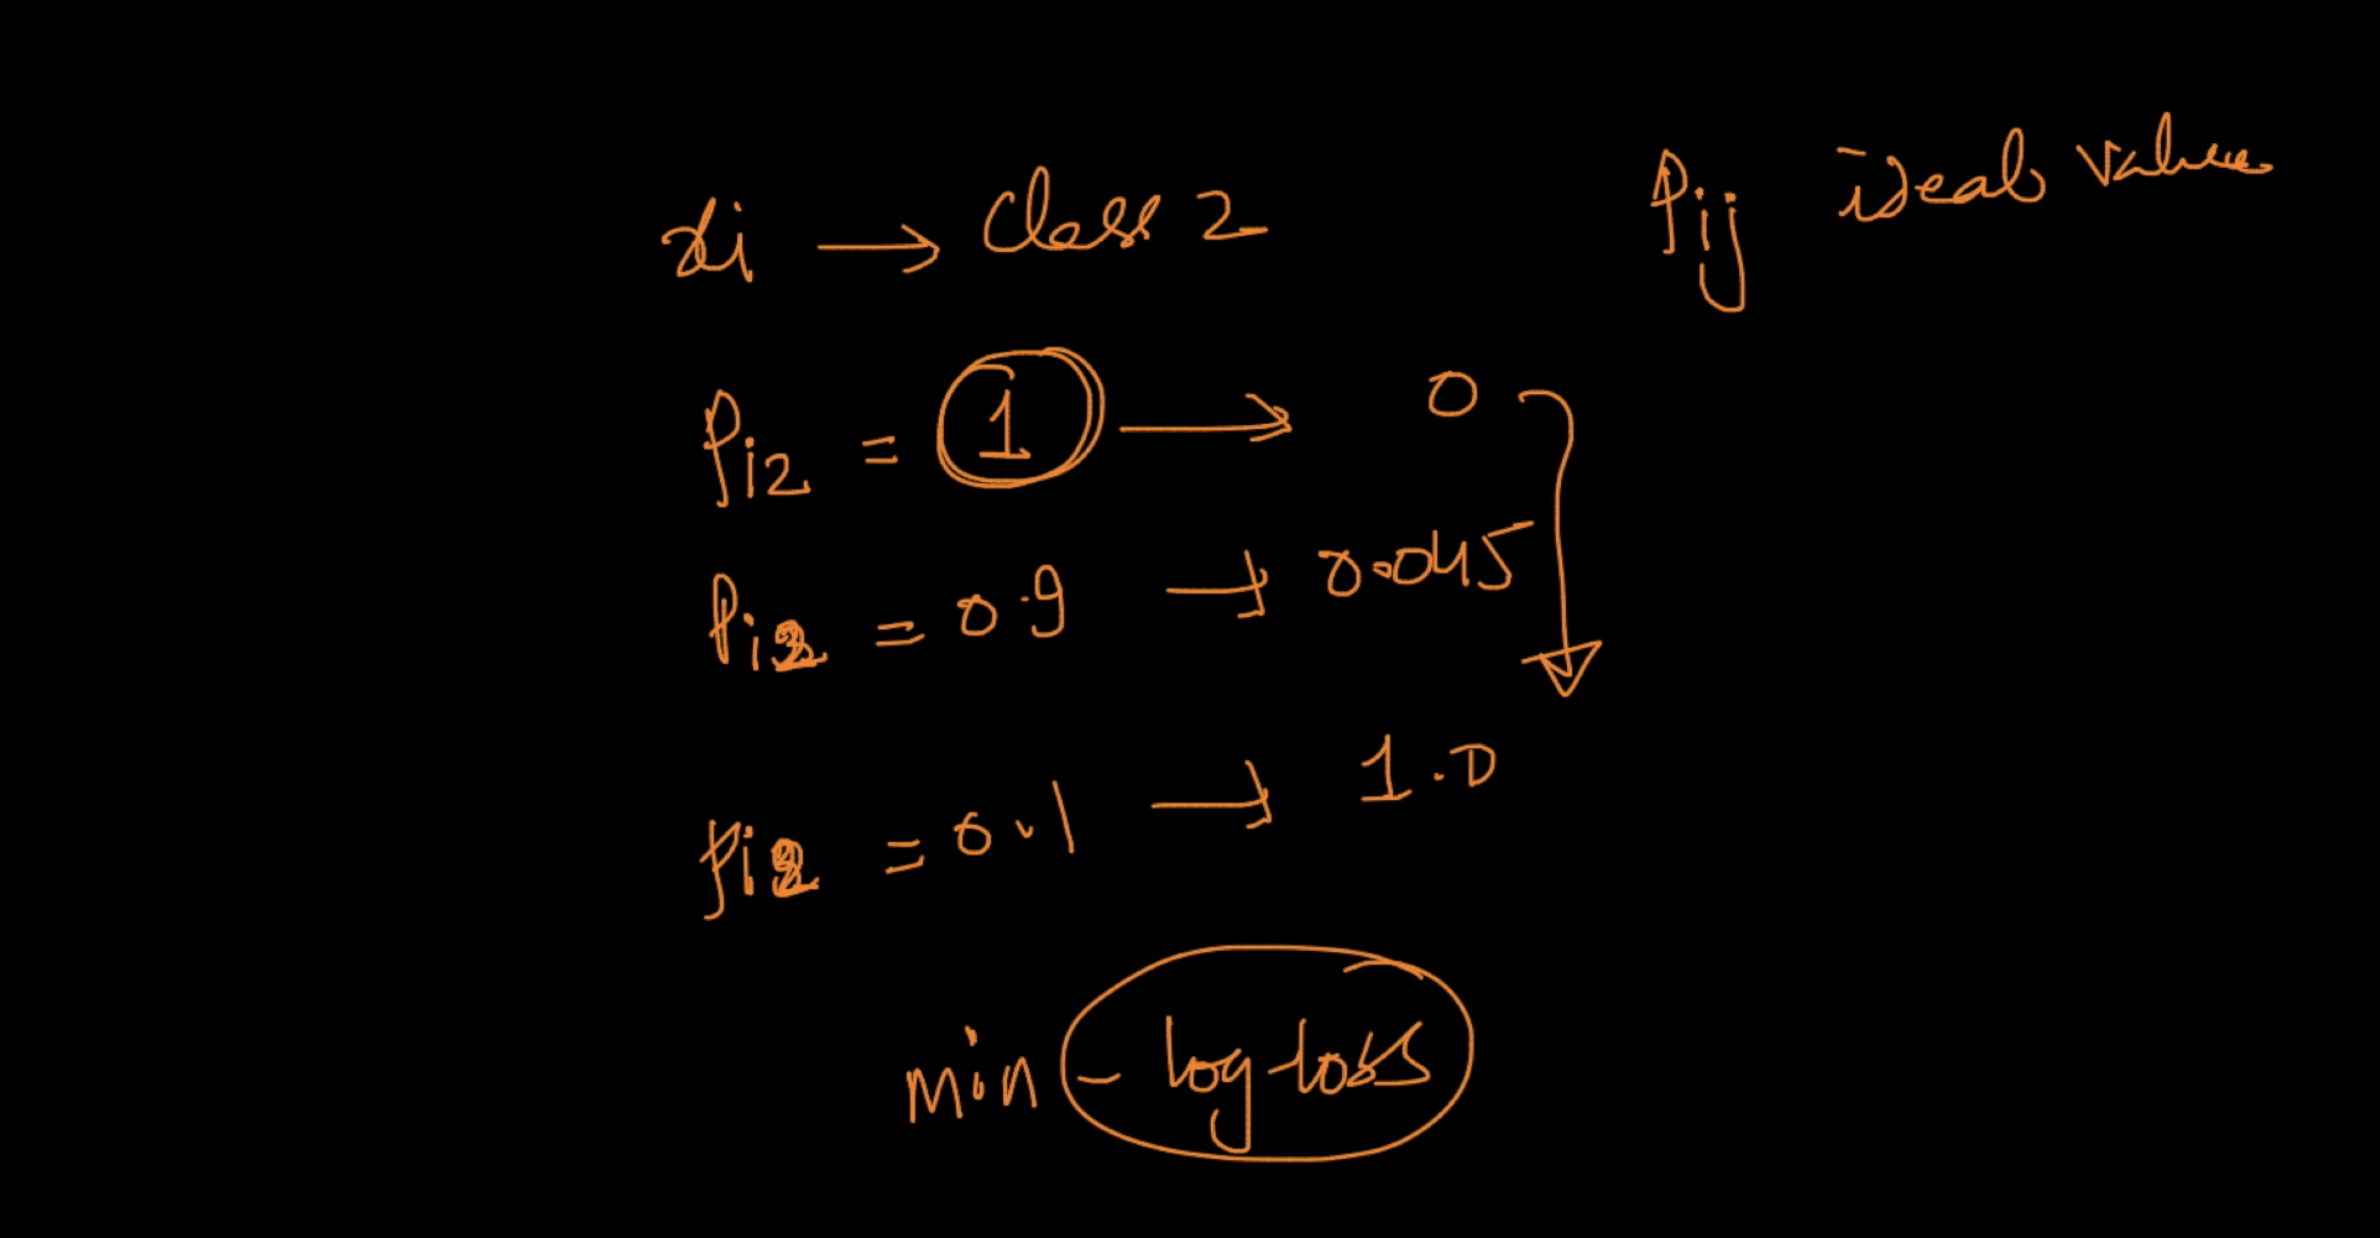 xi → Class 2
Pij ideal values
Pi2 = 1 → 0
Pi2 = 0.9 → 0.045
Pi2 = 0.1 → 1.0
min - log-loss